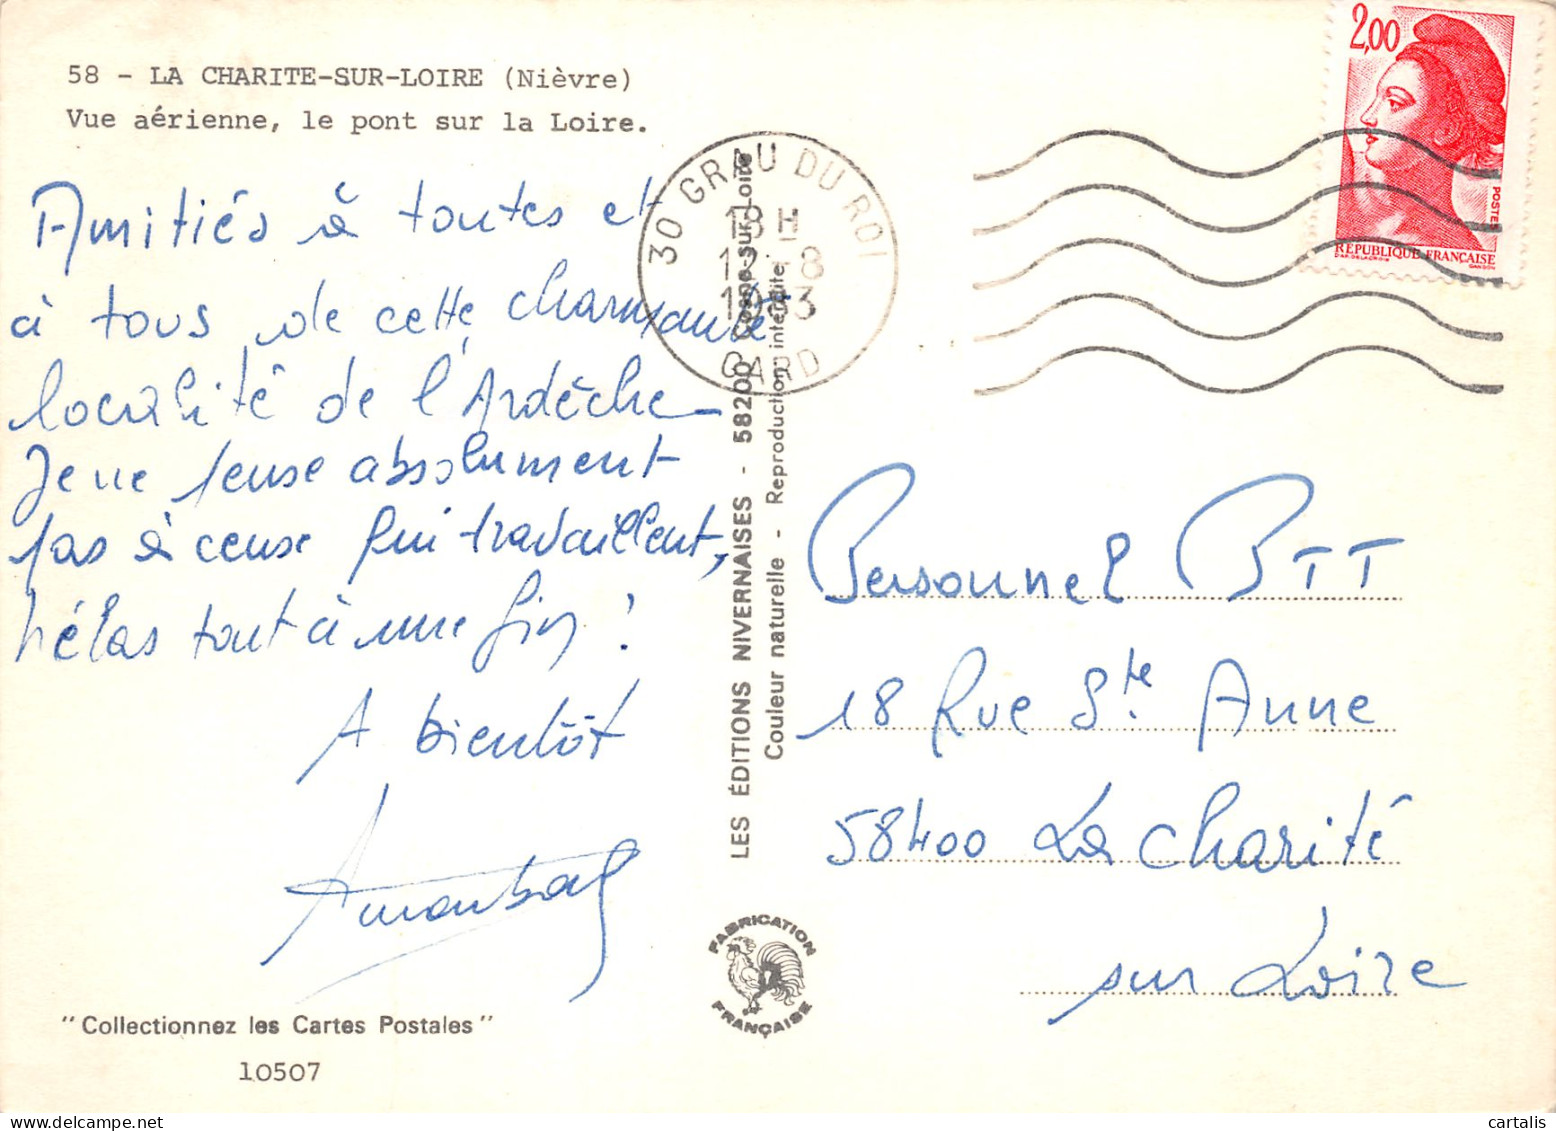 58 - LA CHARITE-SUR-LOIRE (Nièvre)
Vue aérienne, le pont sur la Loire.
Amitiés à toutes et
à tous de cette charmante
localité de l'Ardèche
Je ne pense absolument
pas à ceux qui travaillent,
hélas tout à une fin !
A bientôt
"Collectionnez les Cartes Postales"
10507
LES ÉDITIONS NIVERNAISES - 58200 Cosne-sur-Loire
Couleur naturelle - Reproduction interdite
FABRICATION
FRANÇAISE
30 GRAU DU ROI
18 H
12 - 8
1983
GARD
2,00
POSTES
RÉPUBLIQUE FRANÇAISE
D'AP. DELACROIX
GANDON
Personnel PTT
18 Rue Ste Anne
58400 La Charité
sur Loire
cartalis